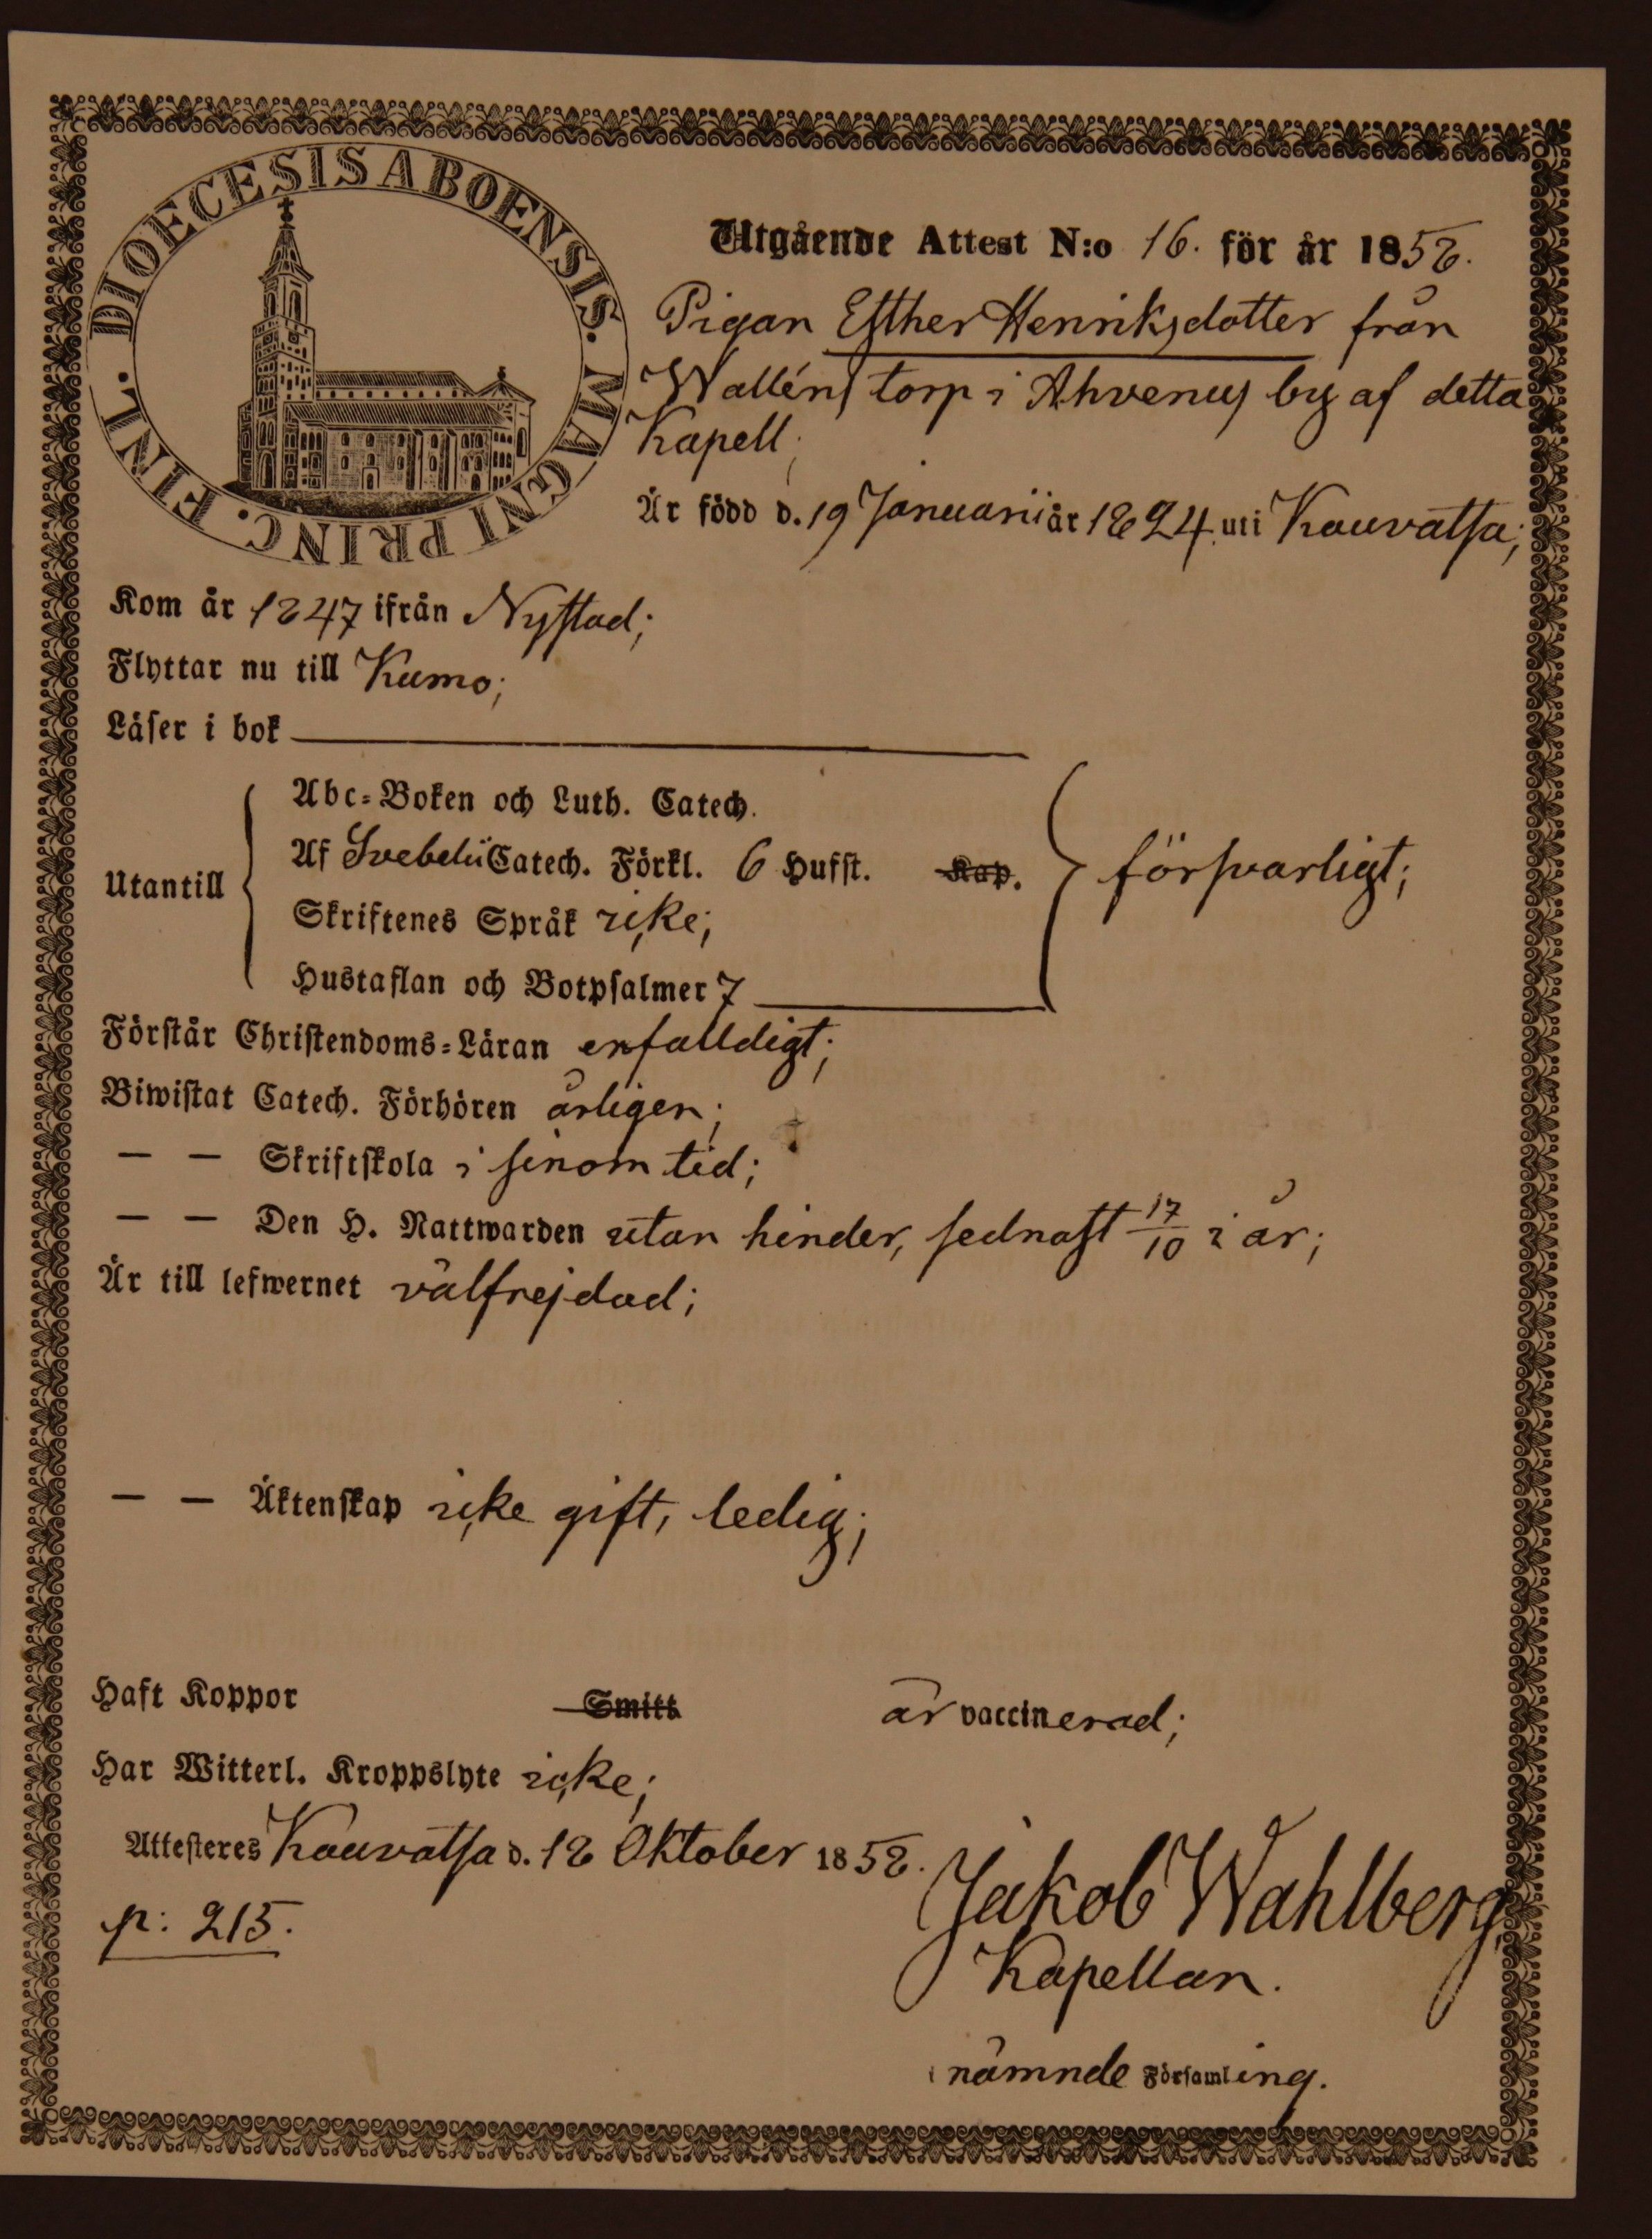 DIOECESIS ABOENSIS. MAGNI PRINC. FINL.
Utgående Attest N:o 16. för år 1858.
Pigan Esther Henriksdotter från
Walléns torp i Ahvenus by af detta
Kapell;
Är född d. 19 Januarii år 1824 uti Kauvatsa;
Kom år 1847 ifrån Nystad;
Flyttar nu till Kumo;
Läser i bok
Abc-Boken och Luth. Catech.
Utantill Af Svebelii Catech. Förkl. 6 Hufst. Kap. försvarligt;
Skriftenes Språk icke;
Hustaflan och Botpsalmer 7
Förstår Christendoms-Läran enfalldigt;
Biwistat Catech. Förhören årligen;
— — Skriftskola i sinom tid;
— — Den H. Nattwarden utan hinder, sednast 17/10 i år;
Är till lefwernet välfrejdad;
— — Äktenskap icke gift, ledig;
Haft Koppor Smitt är vaccinerad;
Har Witterl. Kroppslyte icke;
Attesteres Kauvatsa d. 18 Oktober 1858.
Jakob Wahlberg,
p: 215.
Kapellan.
i nämnde Församling.